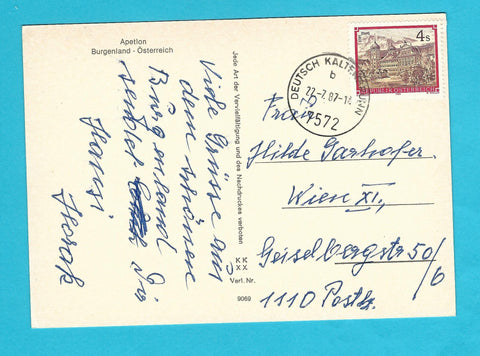 Apetlon
Burgenland - Österreich
Jede Art der Vervielfältigung und des Nachdruckes verboten
KK
XX
Verl. Nr.
9069
Viele Grüsse aus
dem schönen
Burgenland
sendet Dir
Hansi
4s
REPUBLIK ÖSTERREICH
DEUTSCH KALTENBRUNN
b
22-7.87-14
7572
Frau
Hilde Garhofer
Wien XI.,
Geiselbergstr 50/
6
1110 Postk.